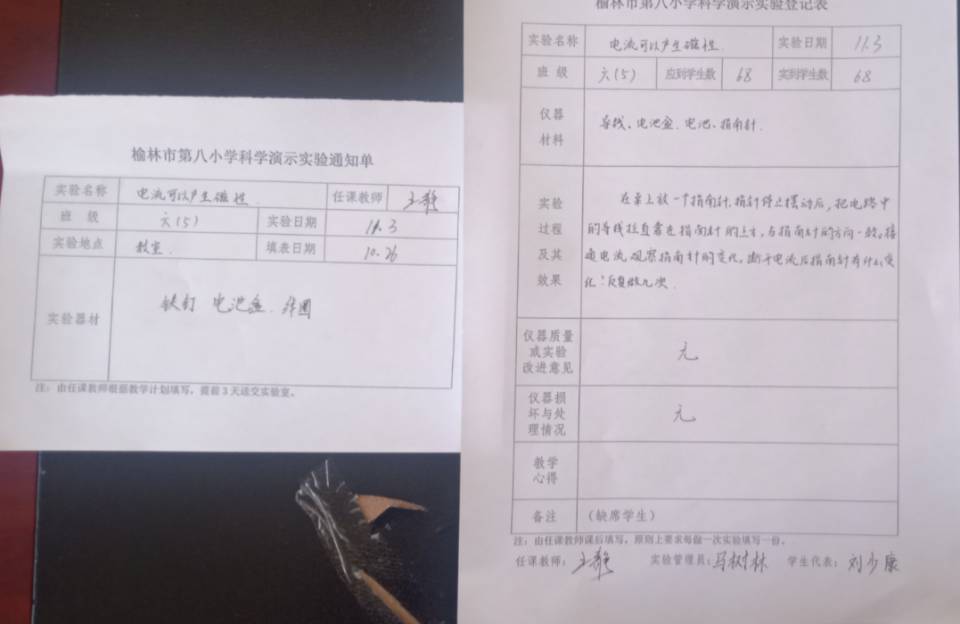 榆林市第八小学科学演示实验通知单
实验名称 电流可以产生磁性 任课教师 王艳
班 级 六(5) 实验日期 11.3
实验地点 教室. 填表日期 10.26
实验器材 铁钉 电池盒.
注：由任课教师根据教学计划填写，提前3天送交实验室。
榆林市第八小学科学演示实验登记表
实验名称 电流可以产生磁性. 实验日期 11.3
班 级 六(5) 应到学生数 68 实到学生数 68
仪器
材料
导线、电池盒.电池、指南针.
实验
过程
及其
效果
在桌上放一个指南针.指针停止摆动后,把电路中
的导线拉直靠在指南针的上方,与指南针的方向一致.接
通电流,观察指南针的变化,断开电流后指南针有什么变
化?反复做几次.
仪器质量
或实验
改进意见
无
仪器损
坏与处
理情况
无
教学
心得
备注 （缺席学生）
注：由任课教师课后填写，原则上要求每做一次实验填写一份。
任课教师：王艳 实验管理员：马树林 学生代表：刘少康